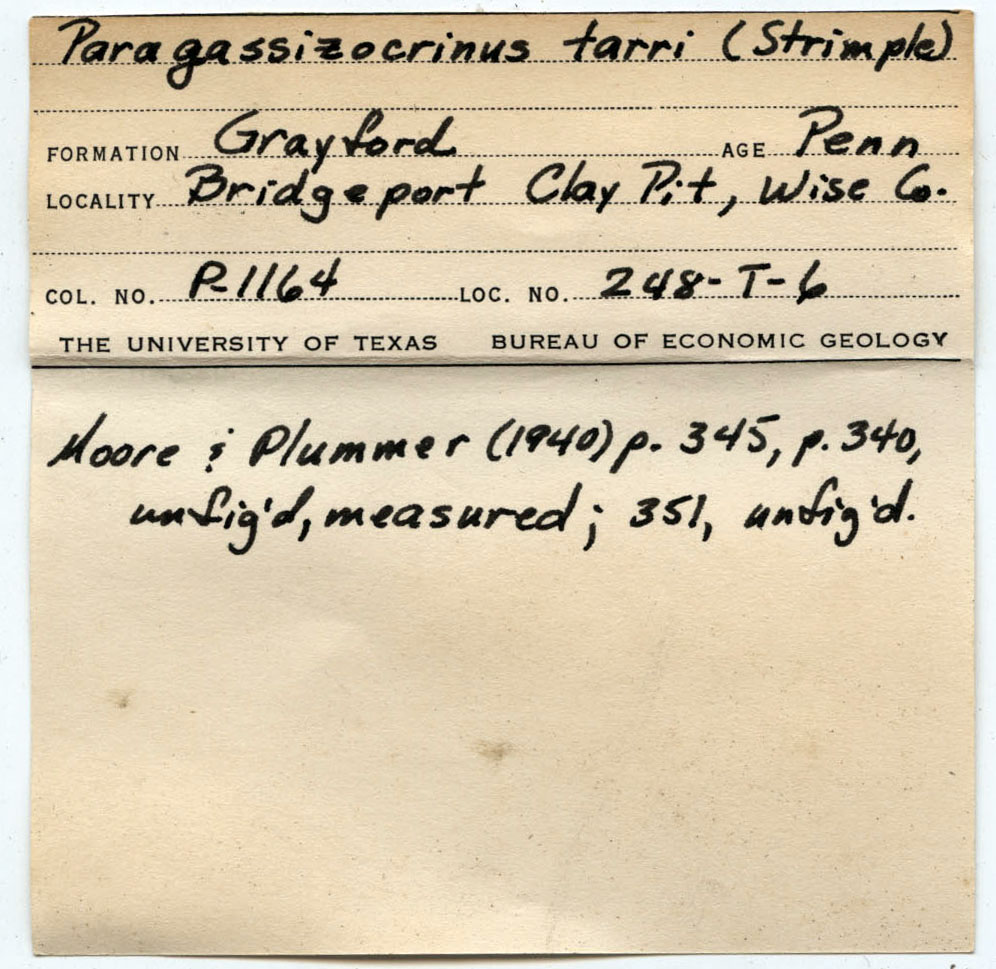 Paragassizocrinus tarri (Strimple)
FORMATION Grayford AGE Penn
LOCALITY Bridgeport Clay Pit, Wise Co.
COL. NO. P-1164 LOC. NO. 248-T-6
THE UNIVERSITY OF TEXAS BUREAU OF ECONOMIC GEOLOGY
Moore & Plummer (1940) p. 345, p. 340,
unfig'd, measured; 351, unfig'd.